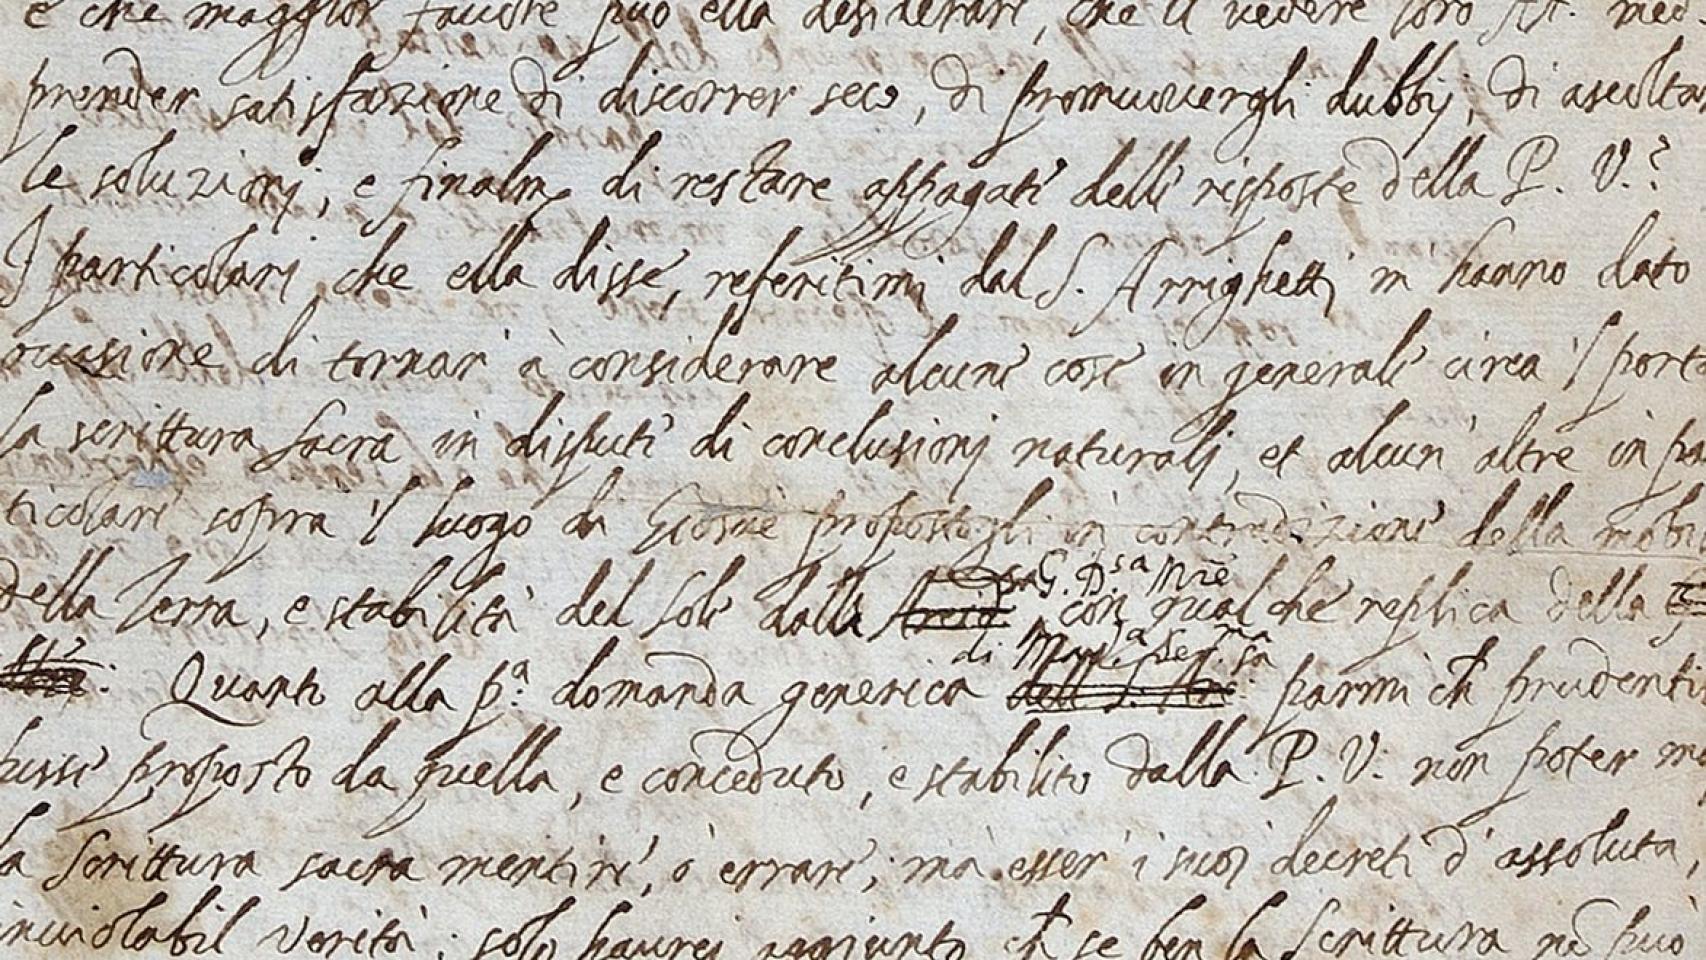 e che maggior favore può ella desiderare, che il vedere loro Al. med
prender satisfazione di discorrer seco, di promuovergli dubbij, di ascoltar
le soluzionj, e finalm. di restare appagati delle risposte della P. V.?
I particolarj che ella disse, referitimj dal S. Arrighettj m' hanno dato
occasione di tornar' à considerare alcune cose in generale circa 'l porta
la scrittura sacra in dispute di conclusionj naturalj, et alcun' altre in par
ticolare sopra 'l luogo di Giosuè propostogli in contradizione della mobil
della Terra, e stabilità del Sole dalla G. D.sa M.re con qualche replica della
di Mad.a Ser.ma
Quanto alla p.a domanda generica parmi ch prudentis
fusse proposto da quella, e conceduto, e stabilito dalla P. V. non poter ma
la Scrittura sacra mentire, ò errare; mà esser' i suoj decreti d' assoluta,
inviolabil verità; solo haurej aggiunto ch se ben la Scrittura nõ può